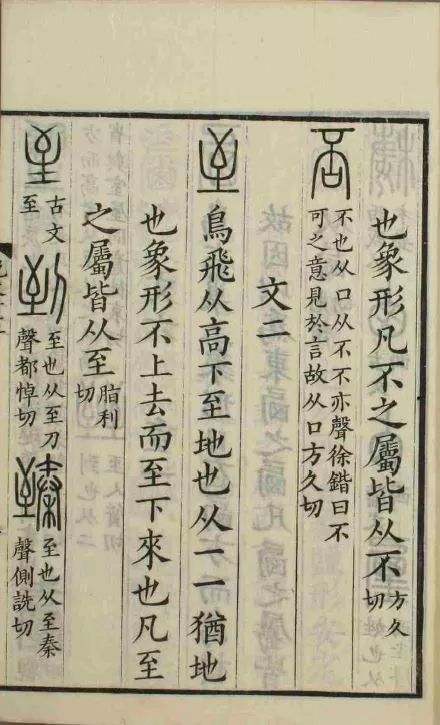 也象形凡不之屬皆从不方久切
否不也从口从不不亦聲徐鍇曰不可之意見於言故从口方久切
文二
至鳥飛从高下至地也从一一猶地
也象形不上去而至下來也凡至
之屬皆从至脂利切
古文至 到至也从至刀聲都悼切 臻至也从至秦聲側詵切